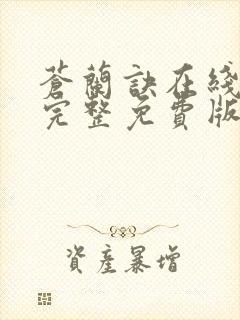 蒼蘭訣在綫
完整免費版
資產暴增